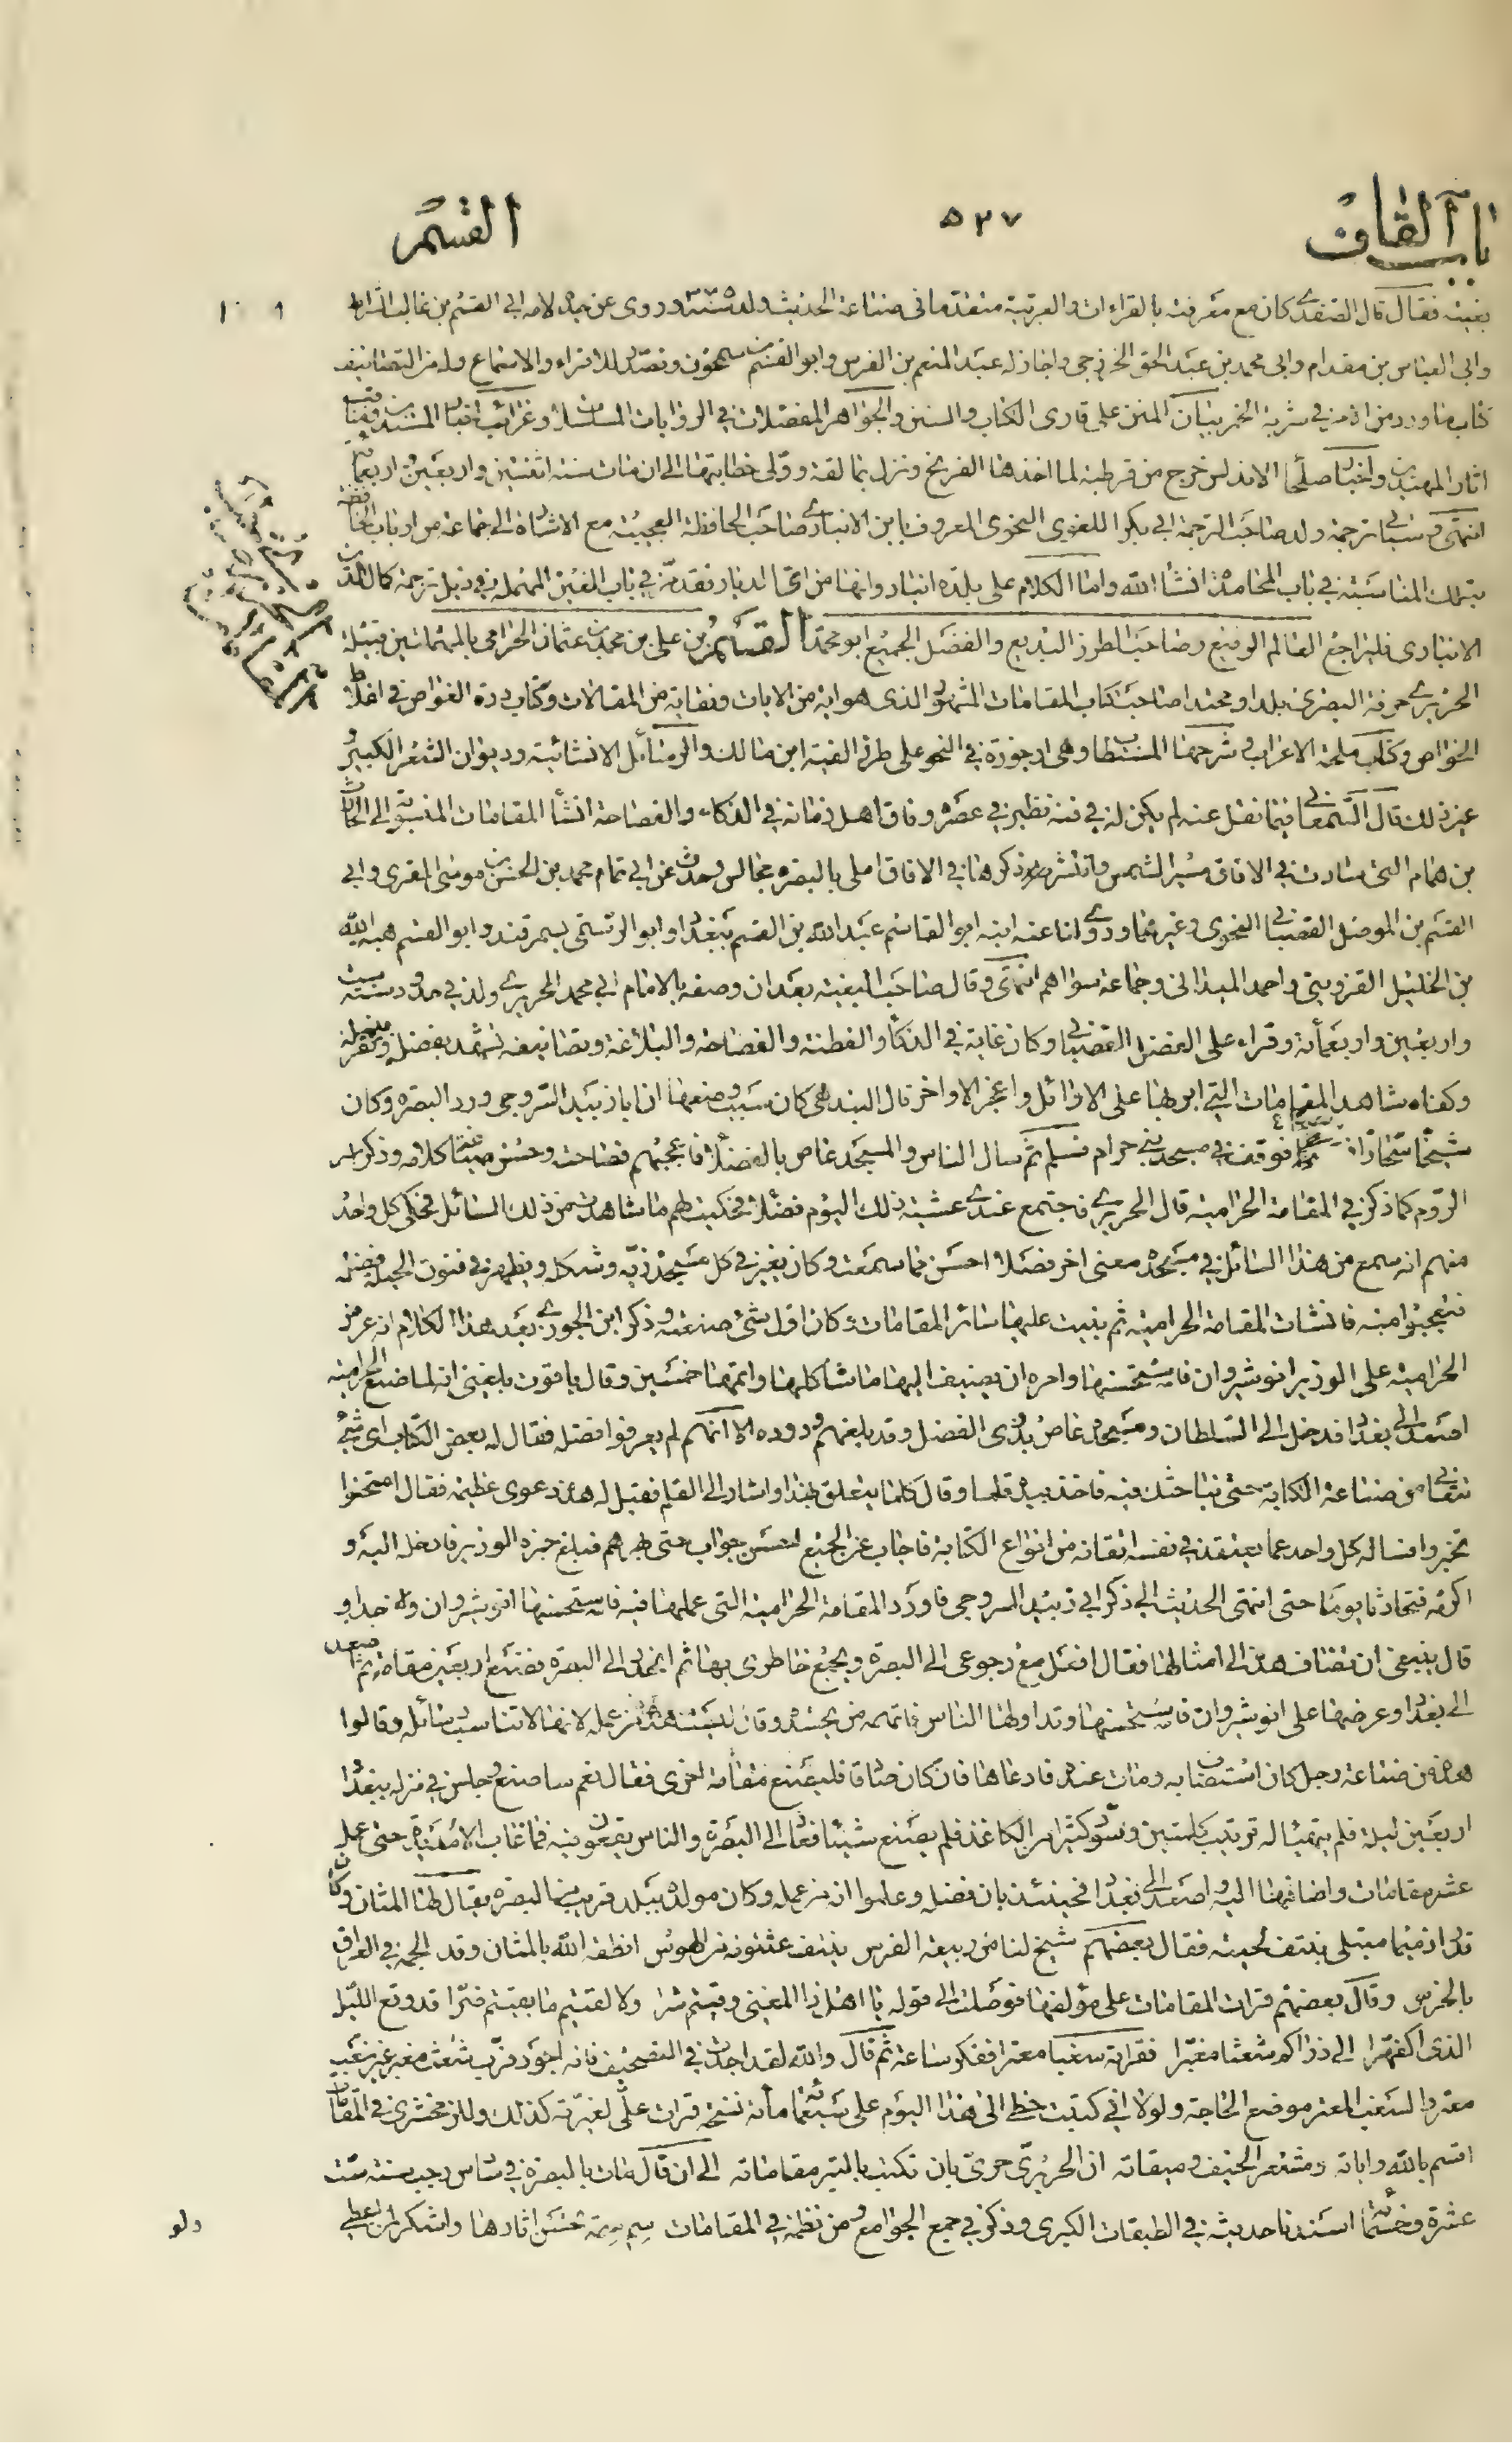 باب القاف ۵۲۷ القسم
بغيته فقال قال الصفدى كان مع معرفته بالقراءات والعربية متقدما فى صناعة الحديث ولد سنة وروى عن جده لامه ابى القسم بن غالب الشراط
وابى العباس بن مقدام وابى محمد بن عبد الحق الخزرجى واجاز له عبد المنعم بن الفرس وابو القسم بن سمحون وتصدر للاقراء والاسماع وله من التصانيف
كتاب ما ورد من الامر فى شربة الخمر بيان المنن على قارى الكتاب والسنن والجواهر المفصلات فى الروايات المسلسلات وغرائب اخبار المسندين ومناقب
اثار المهتدين واخبار صلحاء الاندلس خرج من قرطبة لما اخذها الفرنج ونزل بمالقة وولى خطابتها الى ان مات سنة اثنتين واربعين اربعمائة
انتهى وسياتى ترجمة ولد صاحب الترجمة ابى بكر اللغوى النحوى المعروف بابن الانبارى صاحب الحافظة العجيبة مع الاشارة الى جماعة من ارباب الحافظة
بتلك المناسبة فى باب المحامدة انشاء الله واما الكلام على بلدة انبار وانها من اى الديار فقد مر فى باب العين المهملة فى ذيل ترجمة كمال الدين
الانبارى فليراجع العالم الرفيع وصاحب الطرز البديع والفضل الجميع ابو محمد القسم بن على بن محمد بن عثمان الحرامى بالمهملتين قبيلة
الحريرى حرفة البصرى بلدا ومحتدا صاحب كتاب المقامات المشهور الذى هو اية من الايات ونقاية من المقالات وكتاب درة الغواص فى اغلاط
الخواص وكتاب ملحة الاعراب وشرحها المستطاب وهى ارجوزة فى النحو على طرز الفية ابن مالك والرسائل الانشائية وديوان الشعر الكبير و
غير ذلك قال السمعانى فيما نقل عنه لم يكن له فى فنه نظير فى عصره وفاق اهل زمانه فى الذكاء والفصاحة انشا المقامات المنسوبة الى الحارث
بن همام التى سارت فى الافاق مسير الشمس وانتشر ذكرها فى الافاق املى بالبصرة مجالس وحدث عن ابى تمام محمد بن الحسن بن موسى المقرى وابى
القسم بن الموصل القصبانى النحوى وغيرهما وروى لنا عنه ابنه ابو القاسم عبد الله بن القسم ببغداد وابو الرستمى بسمرقند وابو القسم هبة الله
بن الخليل القزوينى واحمد الميدانى وجماعة سواهم انتهى وقال صاحب البغية بعد ان وصفه بالامام ابى محمد الحريرى ولد فى حدود سنة ست
واربعين واربعمائة وقراء على الفضل القصبانى وكان غاية فى الذكاء والفطنة والفصاحة والبلاغة وتصانيفه تشهد بفضله وتقر بنبله
وكفاه شاهد المقامات التى ابر بها على الاوائل واعجز الاواخر قال البندهى كان سبب وضعها ان ابا زيد السروجى ورد البصرة وكان
شيخا شحاذا فوقف فى مسجد بنى حرام فسلم ثم سال الناس والمسجد غاص بالفضلاء فاعجبهم فصاحته وحسن صياغة كلامه وذكر اسر
الروم كما ذكر فى المقامة الحرامية قال الحريرى فاجتمع عندى عشية ذلك اليوم فضلاء فحكيت لهم ما شاهدت من ذلك السائل فحكى كل واحد
منهم انه سمع من هذا السائل فى مسجده معنى اخر فصلا احسن مما سمعت وكان يغير فى كل مسجد زيه وشكله ويظهر فى فنون الحيلة فضله
فتعجبوا منه فانشات المقامة الحرامية ثم بنيت عليها سائر المقامات وكان اول شئ صنعته وذكر ابن الجوزى بعد هذا الكلام انه عرض
الحرامية على الوزير انوشروان فاستحسنها وامره ان يضيف اليها ما شاكلها واتمها خمسين وقال ياقوت بلغنى انه لما صنع الحرامية
اصعد الى بغداد فدخل الى السلطان ومسجده غاص بذوى الفضل وقد بلغهم وروده الا انهم لم يعرفوا فضله فقال له بعض الكتاب اى شئ
تتعانى من صناعة الكتابة حتى نباحثك فيه فاخذ بيده قلما وقال كلما يتعلق بهذا واشار الى القلم فقيل له هذه دعوى عظيمة فقال امتحنوا
تخبروا فساله كل واحد عما يعتقد فى نفسه اتقانه من انواع الكتابة فاجاب عن الجميع احسن جواب حتى بهرهم فبلغ خبره الوزير فادخله اليه و
اكرمه فتحادثا يوما حتى انتهى الحديث الى ذكر ابى زيد السروجى فاورد المقامة الحرامية التى عملها فيه فاستحسنها انوشروان جدا و
قال ينبغى ان يضاف هذه الى امثالها فقال افعل مع رجوعى الى البصرة وتجمع خاطرى بها ثم انحدر الى البصرة فصنع اربعين مقامة ثم اصعد
الى بغداد وعرضها على انوشروان فاستحسنها وتداولها الناس فاتهمه من يحسده وقال ليست هذه من عمله لانها لا تناسب رسائله وقالوا
هذه من صناعة رجل كان استضاف به ومات عنده فادعاها فان كان صادقا فليصنع مقامة اخرى فقال نعم ساصنع وجلس فى منزله ببغداد
اربعين ليلة فلم يتهيا له ترتيب كلمتين وسود كثيرا من الكاغذ فلم يصنع شيئا فعاد الى البصرة والناس يقعون فيه فما غاب الا مديدة حتى عمل
عشر مقامات واضافها اليه واصعد الى بغداد فحينئذ بان فضله وعلموا انه من عمله وكان مولده ببلد قريب من البصرة يقال لها المشان وكان
مبتلى بنتف لحيته فقال بعضهم شيخ لنا من ربيعة الفرس ينتف عثنونه من الهوس انطقه الله بالمشان وقد الجمه فى العراق
بالخرس وقال بعضهم قرات المقامات على مؤلفها فوصلت الى قوله يا اهل ذا المغنى وقيتم شرا ولا لقيتم ما بقيتم ضرا قد دفع الليل
الذى اكفهرا الى ذراكم شعثا مغبرا فقراته سغبا معترا ففكر ساعة ثم قال والله لقد اجدت فى التصحيف فانه اجود فرب شعث مغبر غير سغب
معتر والسغب المعتر موضع الحاجة ولولا انى كتبت خطى الى هذا اليوم على سبعمائة نسخة قرات على لغيرته كذلك وللزمخشرى فى المقامات
اقسم بالله واياته ومشعر الخيف وميقاته ان الحريرى حرى بان تكتب بالتبر مقاماته الى ان قال مات بالبصرة فى سادس رجب سنة ست
عشرة وخمسمائة اسندنا حديثه فى الطبقات الكبرى وذكر فى جمع الجوامع ومن نظمه فى المقامات سم سمة تحسن اثارها واشكر لمن اعطى
ولو